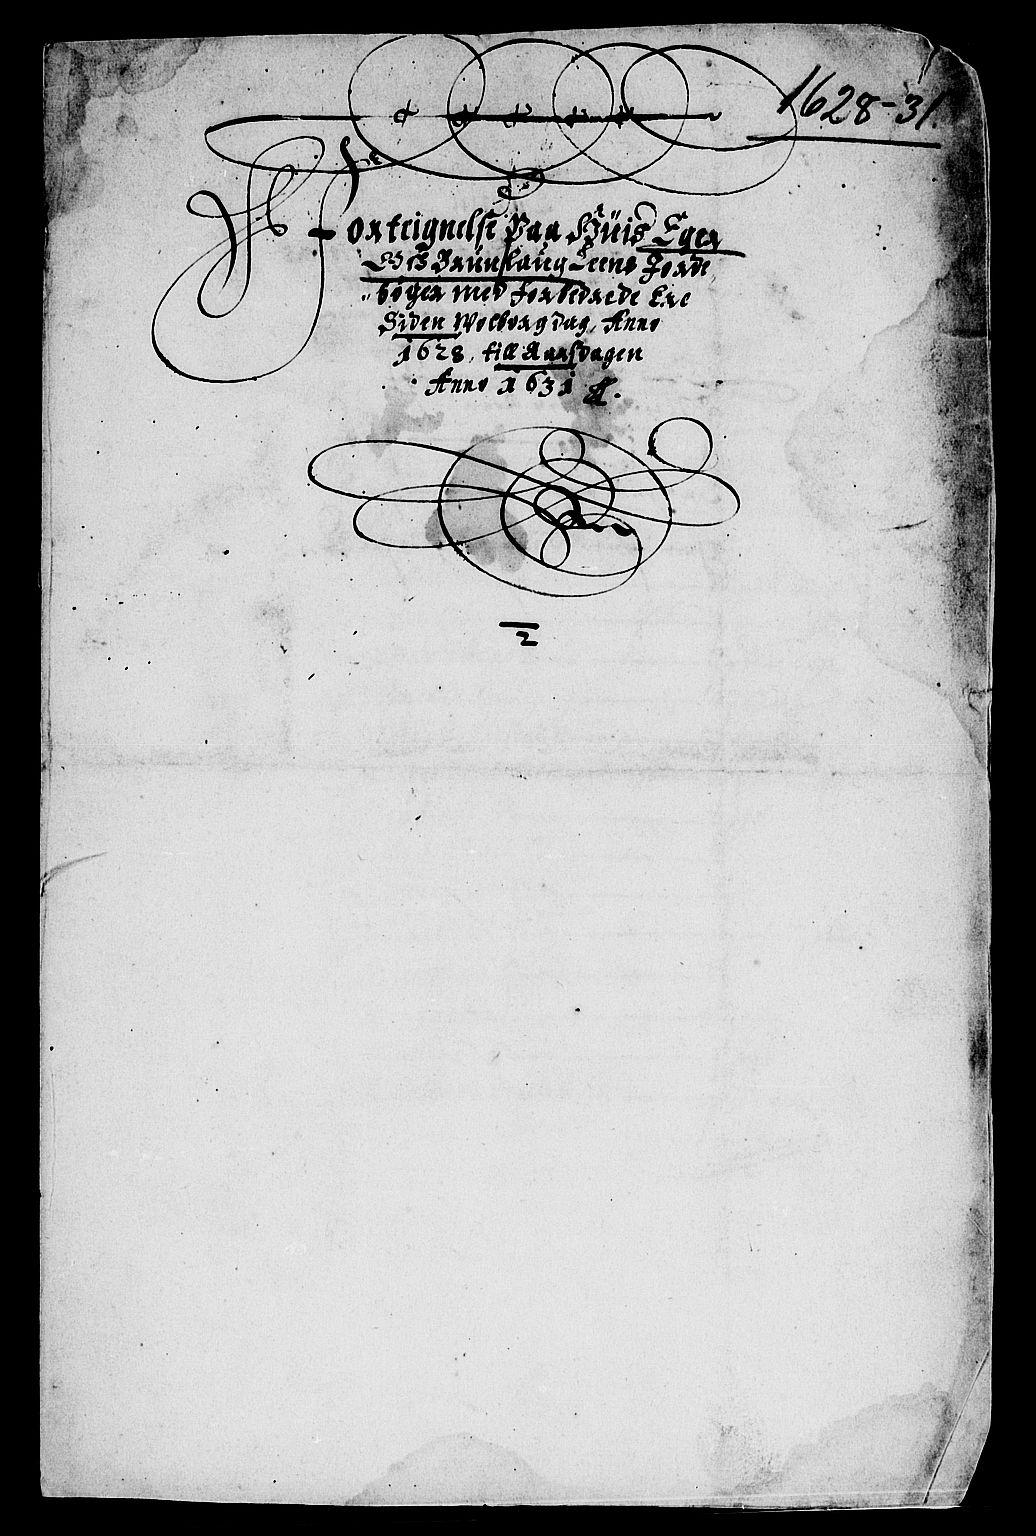 1628-31.
Forteignelse Paa Huis Eger
och Brunlaug Leens Jorde
bøger med forbedrede Ere
Siden Wolborgdag, Anno
1628, till Aarsdagen
Anno 1631
2